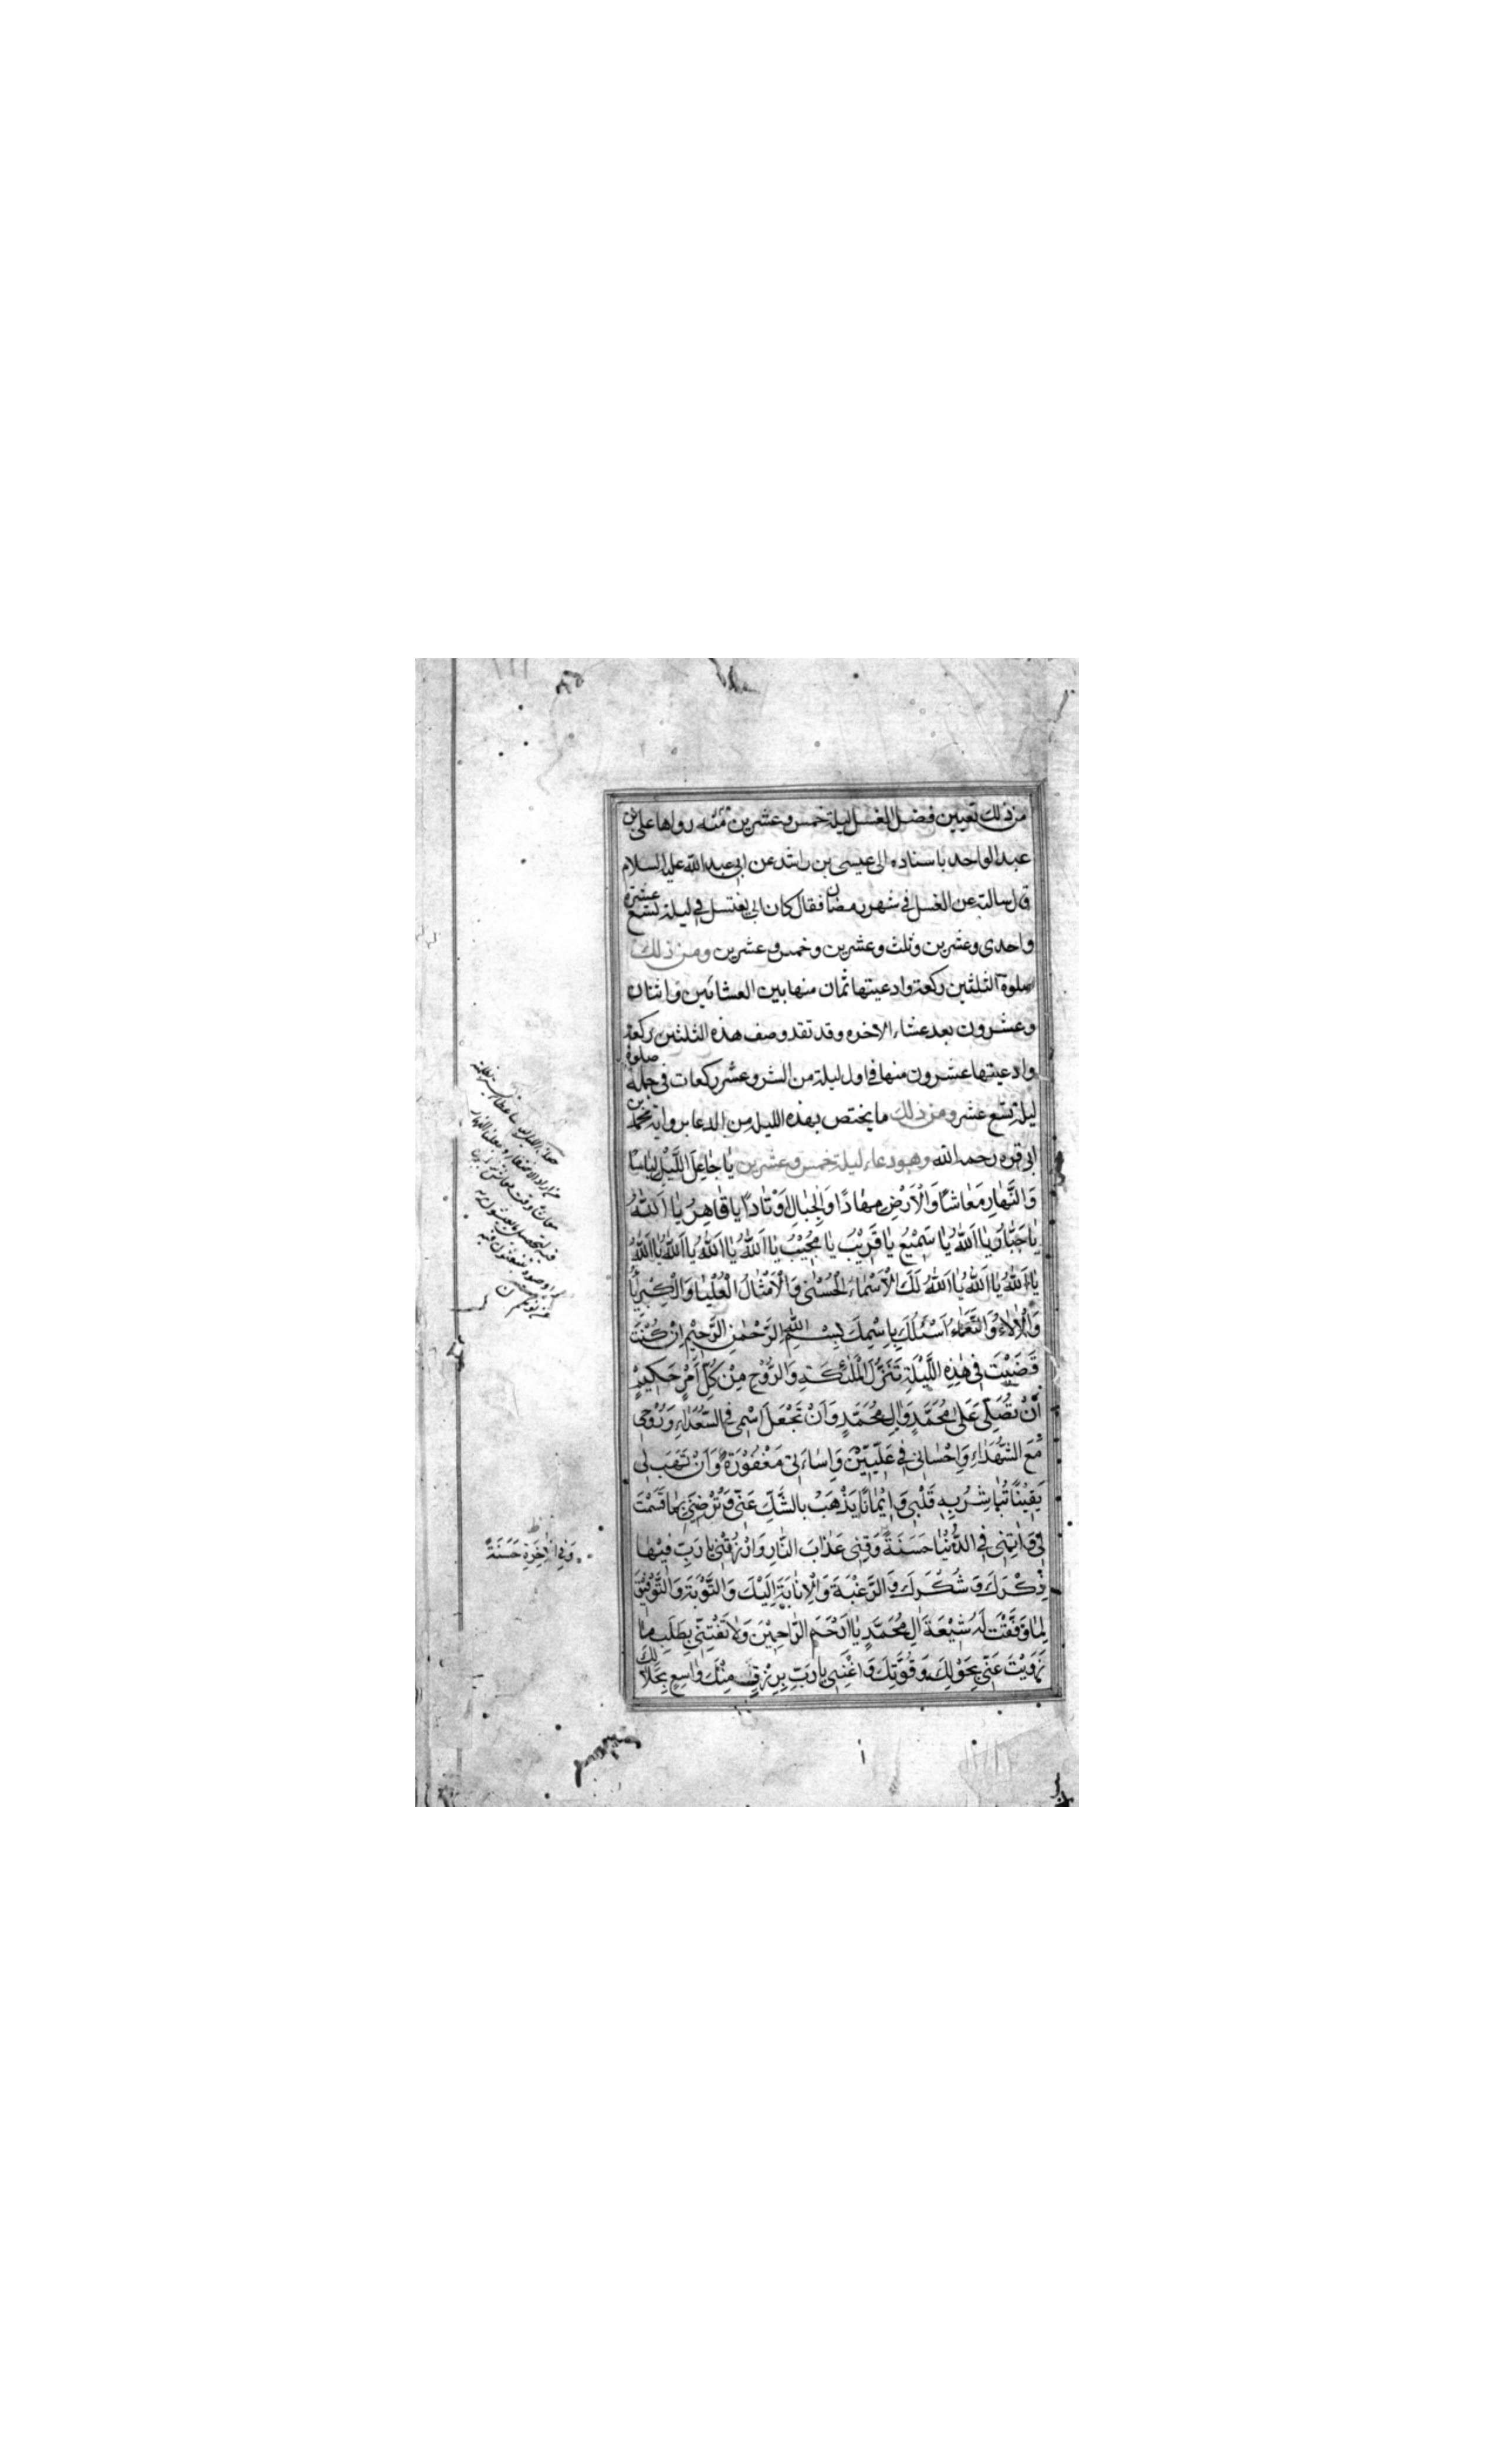 من ذلك تعيين فضل الغسل ليلة خمس وعشرين منه رواها علي بن
عبد الواحد باسناده الى عيسى بن راشد عن ابى عبد الله عليه السلام
قال سالته عن الغسل فى شهر رمضان فقال كان ابى يغتسل فى ليلة تسع عشرة
واحدى وعشرين وثلث وعشرين وخمس وعشرين ومن ذلك
صلوة الثلثين ركعة وادعيتها ثمان منها بين العشائين واثنتان
وعشرون بعد عشاء الاخره وقد تقد وصف هذه الثلثين ركعة
وادعيتها عشرون منها فى اول ليلة من الشر وعشر ركعات فى جملة صلوة
ليلة تسع عشر ومن ذلك ما يختص بهذه الليل من الدعا برواية محمد بن
ابى قره رحمه الله وهو دعاء ليلة خمس وعشرين يا جَاعِلَ اللَّيْلِ لِبَاسًا
وَالنَّهَارِ مَعَاشًا وَالْاَرْضِ مِهَادًا وَالْجِبَالِ اَوْتَادًا يا قَاهِرُ يَا اَللهُ
يا جَبَّارُ يَا اَللهُ يَا سَمِيْعُ يَا قَرِيْبُ يَا مُجِيْبُ يَا اَللهُ يَا اَللهُ يَا اَللهُ يَا اَللهُ
يَا اَللهُ يَا اَللهُ يَا اَللهُ لَكَ الْاَسْمَاءُ الْحُسْنٰى وَالْاَمْثَالُ الْعُلْيَا وَالْكِبْرِيَاءُ
وَالْاٰلَاءُ وَالنَّعْمَاءُ اَسْئَلُكَ بِاِسْمِكَ بِسْمِ اللهِ الرَّحْمٰنِ الرَّحِيْمِ اِنْ كُنْتَ
قَضَيْتَ فى هٰذِهِ اللَّيْلَةِ تَنَزُّلَ الْمَلٰئِكَةِ وَالرُّوْحِ مِنْ كُلِّ اَمْرٍ حَكِيْمٍ
اَنْ تُصَلِّىَ عَلٰى مُحَمَّدٍ وَاٰلِ مُحَمَّدٍ وَاَنْ تَجْعَلَ اسْمِى فِى السُّعَدَاءِ وَرُوْحِى
مَعَ الشُّهَدَاءِ وَاِحْسَانِى فِى عِلِّيِّيْنَ وَاِسَاءَتِى مَغْفُوْرَةً وَاَنْ تَهَبَ لِى
يَقِيْنًا تُبَاشِرُ بِهِ قَلْبِى وَاِيْمَانًا يَذْهَبُ بِالشَّكِّ عَنِّى وَتُرْضِيَنِى بِمَا قَسَمْتَ
لِى وَاٰتِنِى فِى الدُّنْيَا حَسَنَةً وَقِنِى عَذَابَ النَّارِ وَارْزُقْنِى يَا رَبِّ فِيْهَا
ذِكْرَكَ وَ شُكْرَكَ وَالرَّغْبَةَ وَالْاِنَابَةَ اِلَيْكَ وَالتَّوْبَةَ وَالتَّوْفِيْقَ
لِمَا وَفَّقْتَ لَهُ شِيْعَةَ اٰلِ مُحَمَّدٍ يَا اَرْحَمَ الرَّاحِمِيْنَ وَلَا تَفْتِنِّى بِطَلَبِ مَا
زَوَيْتَ عَنِّى بِحَوْلِكَ وَقُوَّتِكَ وَاغْنِنِى يَا رَبِّ بِرِزْقٍ مِنْكَ وَاسِعٍ بِحَلَالِكَ
وَفِى الْاٰخِرَةِ حَسَنَةً